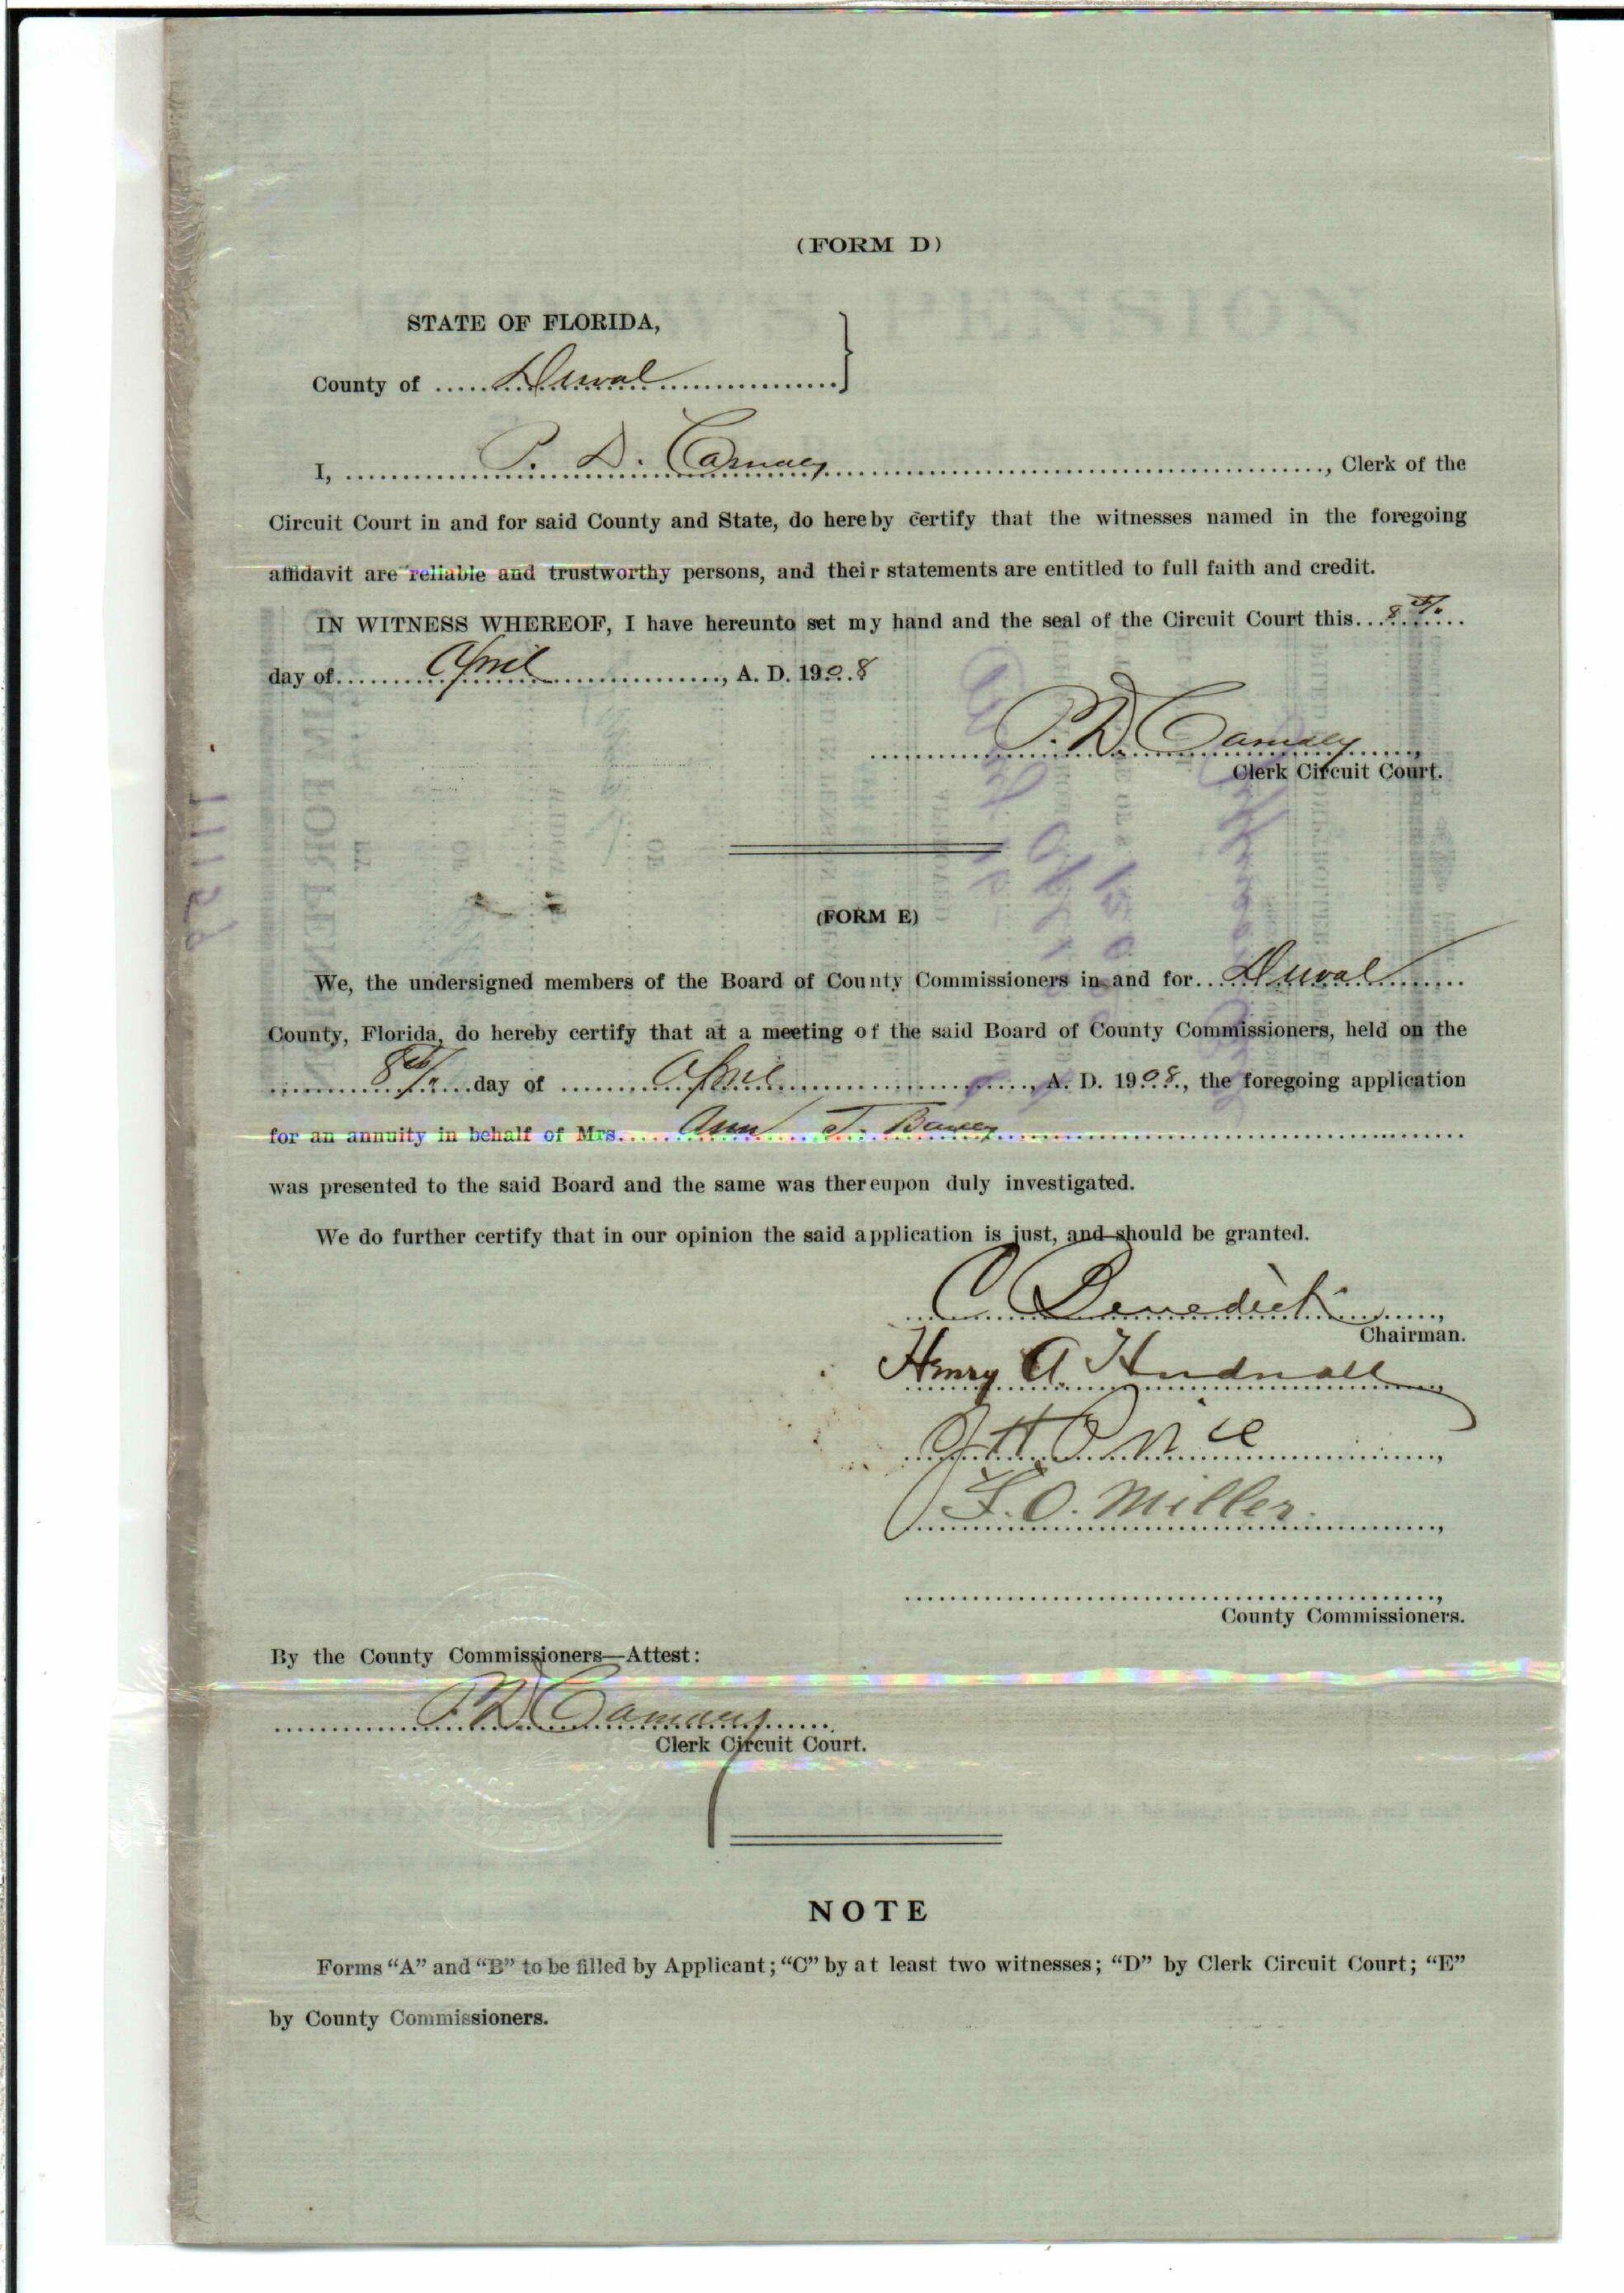 (FORM D)
STATE OF FLORIDA,
County of ..... Duval .....
I, ..... P. D. ....., Clerk of the
Circuit Court in and for said County and State, do hereby certify that the witnesses named in the foregoing
affidavit are reliable and trustworthy persons, and their statements are entitled to full faith and credit.
IN WITNESS WHEREOF, I have hereunto set my hand and the seal of the Circuit Court this... 8th
day of..... April ....., A. D. 1908
P. D.
Clerk Circuit Court.
(FORM E)
We, the undersigned members of the Board of County Commissioners in and for... Duval
County, Florida, do hereby certify that at a meeting of the said Board of County Commissioners, held on the
8th day of ..... April ....., A. D. 1908., the foregoing application
for an annuity in behalf of Mrs..... Ann T.
was presented to the said Board and the same was thereupon duly investigated.
We do further certify that in our opinion the said application is just, and should be granted.
C Benedict
Chairman.
Henry A. Hudnall
F. O. Miller
County Commissioners.
By the County Commissioners—Attest:
P. D.
Clerk Circuit Court.
NOTE
Forms “A” and “B” to be filled by Applicant; “C” by at least two witnesses; “D” by Clerk Circuit Court; “E”
by County Commissioners.